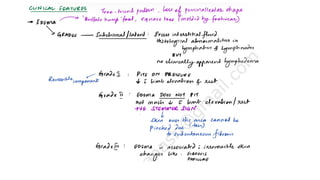 CLINICAL FEATURES
Tree-trunk pattern, loss of perimalleolar shape
"Buffalo hump" foot, square toes (molded by footwear)
→ EDEMA
GRADES
Subclinical/Latent: Excess interstitial fluid
Histological abnormalities in
lymphatics & lymphnodes
BUT
no clinically apparent lymphedema
Reversible
component
Grade I : PITS ON PRESSURE
↓ c̄ limb elevation & rest
Grade II : EDEMA DOES NOT PIT
not much ↓ c̄ limb elevation/rest
+VE STEMMER SIGN
↓
Skin over the area cannot be
pinched due
to subcutaneous fibrosis
Grade III : EDEMA is associated c̄ irreversible skin
changes like: FIBROSIS
PAPILLAE